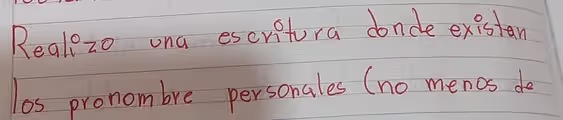 Realizo una escritura donde existan
los pronombre personales (no menos de